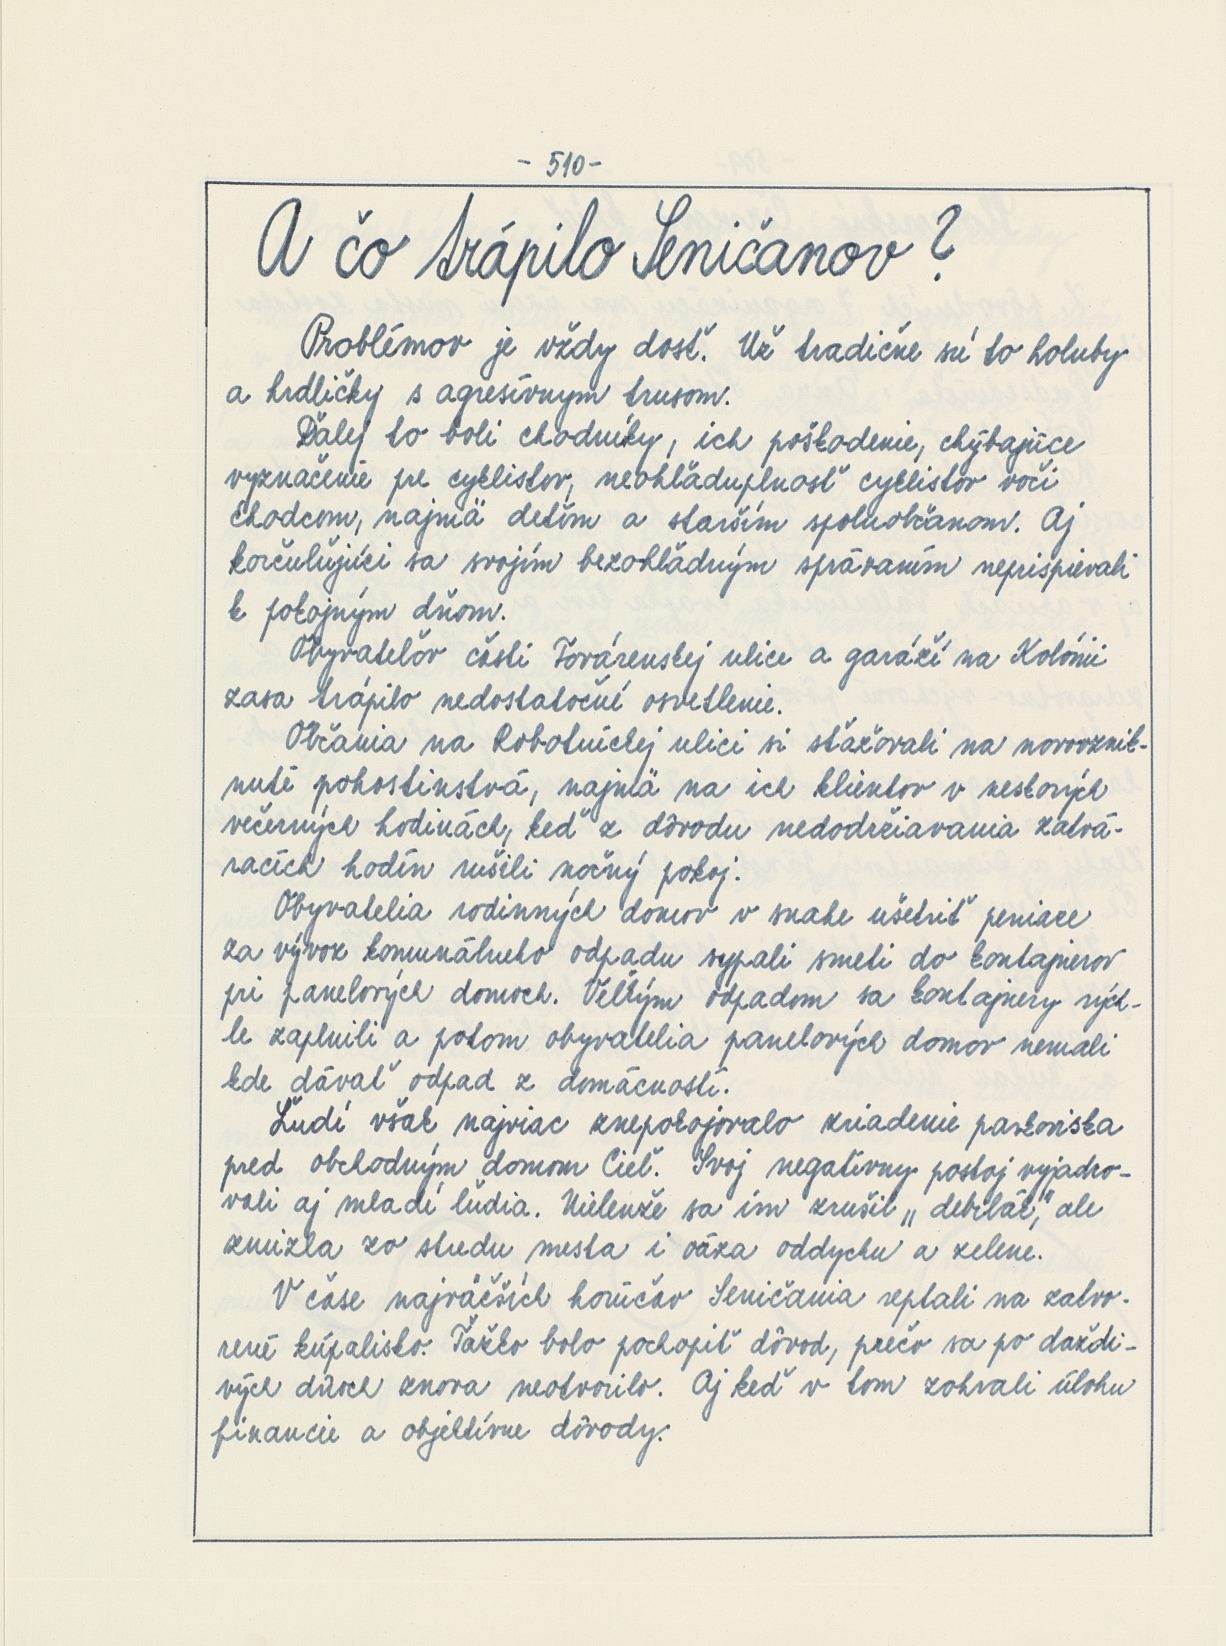 - 510 -
A čo trápilo Seničanov?
Problémov je vždy dosť. Už tradične sú to holuby
a hrdličky s agresívnym trusom.
Ďalej to boli chodníky, ich poškodenie, chýbajúce
vyznačenie pre cyklistov, neohľaduplnosť cyklistov voči
chodcom, najmä deťom a starším spoluobčanom. Aj
korčuľujúci sa svojím bezohľadným správaním neprispievali
k pokojným dňom.
Obyvateľov časti Továrenskej ulice a garáží na Kolónii
zasa trápilo nedostatočné osvetlenie.
Občania na Robotníckej ulici si sťažovali na novovznik-
nuté pohostinstvá, najmä na ich klientov v neskorých
večerných hodinách, keď z dôvodu nedodržiavania zatvá-
racích hodín rušili nočný pokoj.
Obyvatelia rodinných domov v snahe ušetriť peniaze
za vývoz komunálneho odpadu sypali smeti do kontajnerov
pri panelových domoch. Veľkým odpadom sa kontajnery rých-
le zaplnili a potom obyvatelia panelových domov nemali
kde dávať odpad z domácností.
Ľudí však najviac znepokojovalo zriadenie parkoviska
pred obchodným domom Cieľ. Svoj negatívny postoj vyjadro-
vali aj mladí ľudia. Nielenže sa im zrušil „debilák", ale
zmizla zo stredu mesta i oáza oddychu a zelene.
V čase najväčších horúčav Seničania reptali na zatvo-
rené kúpalisko. Ťažko bolo pochopiť dôvod, prečo sa po daždi-
vých dňoch znova neotvorilo. Aj keď v tom zohrali úlohu
financie a objektívne dôvody.